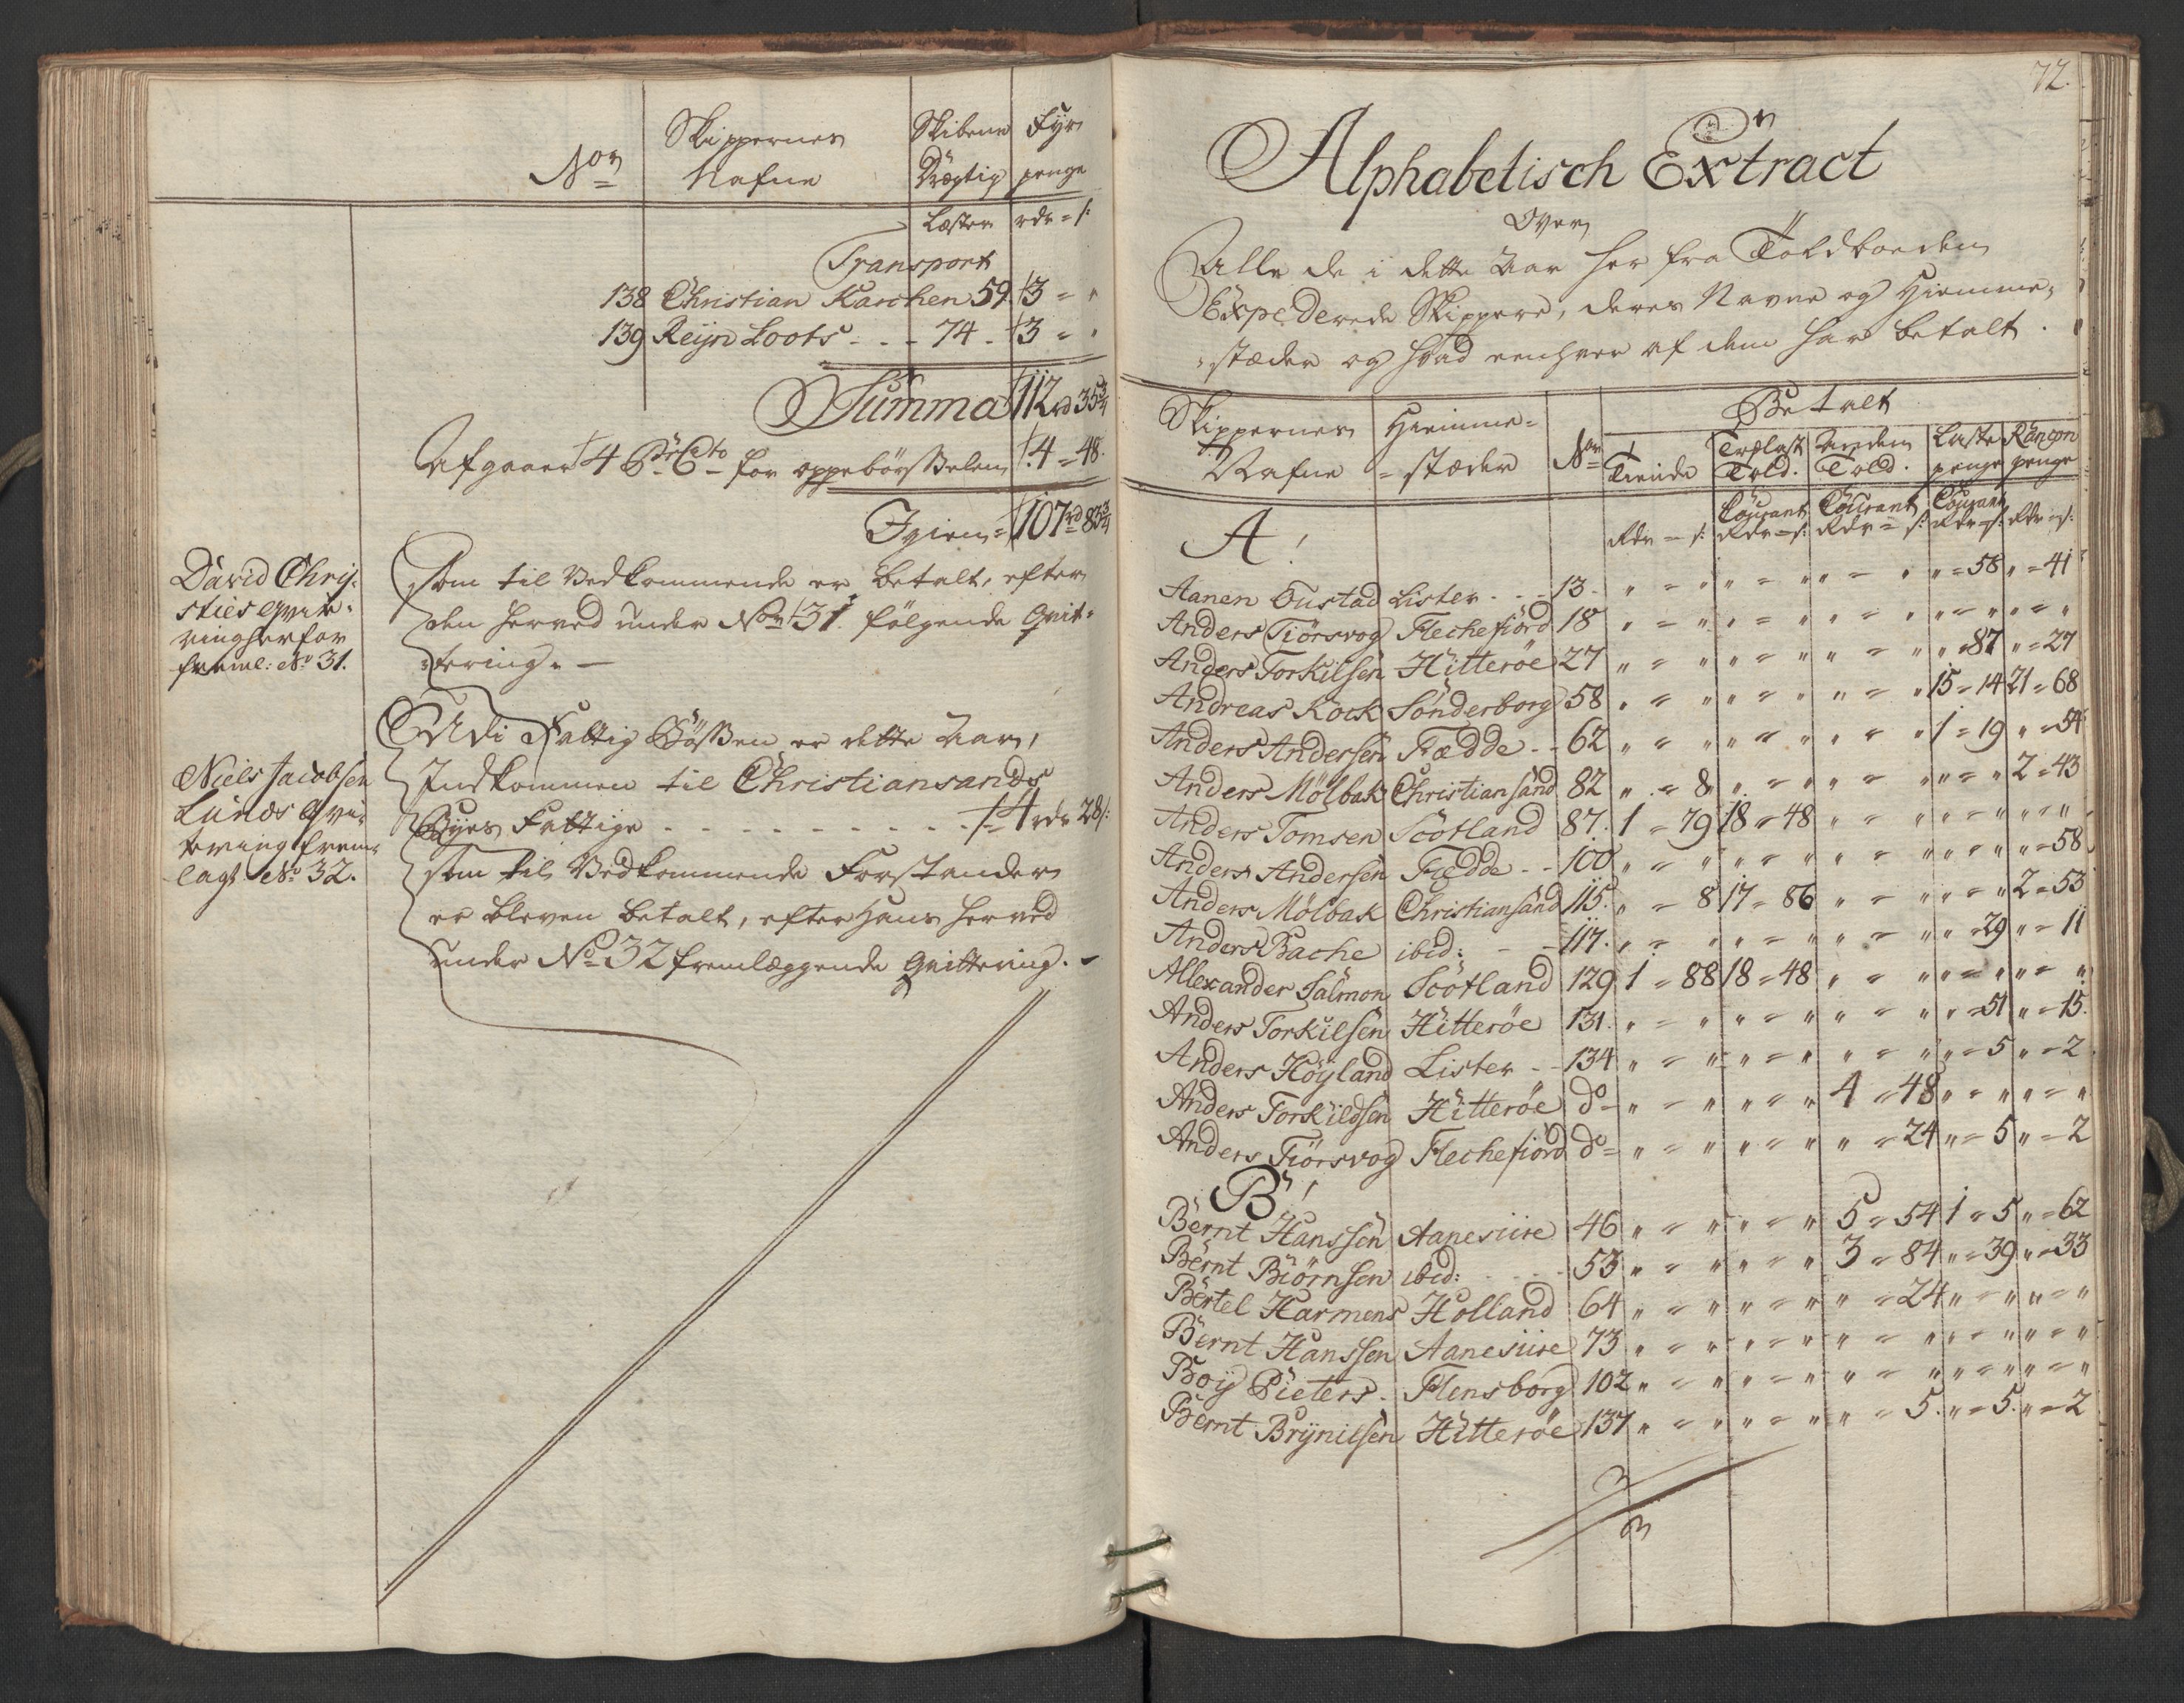 Skippernes Skibene Fyr
No Nafne Drægtig penge
Læster rdr = s:
Transport
138 Christian Karchen 59. 3 = "
139 Reijn Loots - - - 74 - 3 = "
Summa 112 rd 35 3/4
Afgaaer 4 Pr Cto for oppebörsselen 4 = 48.
Igien = 107 rd 83 3/4
David Chris-
sties qvit-
ring herfor
freml: No 31.
som til Vedkommende er betalt, efter
den herved under No 31. fölgende Qvit-
tering. —
Udi Fattig Bössen er dette Aar,
Indkommen til Christiansands
Byes Fattige - - - - - - - - - 4 rdr 28 s:
Niels Jacobsen
Lunds Qvit-
tering frem-
lagt No 32.
som til Vedkommende Forstander
er bleven betalt, efter hans herved
under No 32 fremlæggende Qvittering. -
72.
Alphabetisch Extract
Over
Alle de i dette Aar her fra Toldboeden
Expederede Skippere, deres Navne og Hiemme-
stæder og hvad eenhver af dem har betalt.
Betalt
Skippernes Hiemme-
Nafne stæder No Tiende Trælast Told. Anden Told. Laste penge Rançon penge
Rdr = s: Courant Rdr = s: Courant Rdr = s: Courant Rdr = s: Rdr = s:
A!
Aanen Oustad Lister - - - 13. " = " " = " " = " " = 58 " = 41
Anders Tiörsvog Flechefiord 18 " = " " = " " = " " = " " = "
Anders Torkilsen Hitteröe 27 " = " " = " " = " " = 87 " = 27
Andreas Kock Sönderborg 58 " = " " = " " = " 15 = 14 21 = 68
Anders Andersen Fædde - - 62 " = " " = " " = " 1 = 19 " = 54
Anders Mölbak Christiansand 82 " = 8 " = " " = " " = " 2 = 43
Anders Tomsen Scotland 87. 1 = 79 18 = 48 " = " " = " " = "
Anders Andersen Fædde - - 100 " = " " = " " = " " = " " = 58
Anders Mölbak Christiansand 115. " = 8 17 = 86 " = " " = " 2 = 53
Anders Bache ibid: - - 117. " = " " = " " = " " = 29 " = 11
Allexander Salmon Scotland 129 1 = 88 18 = 48 " = " " = " " = "
Anders Torkilsen Hitteröe 131. " = " " = " " = " " = 51 " = 15.
Anders Höyland Lister - - 134 " = " " = " " = " " = 5 " = 2
Anders Torkildsen Hitteröe do - " = " " = " 4 = 48 " = " " = "
Anders Tiörsvog Flechefiord do = " = " " = " " = 24 " = 5 " = 2
B!
Bernt Hanssen Aanesiire 46 " = " " = " 5 = 54 1 = 5 " = 62
Bernt Biörnsen ibid: - - - 53 " = " " = " 3 = 84 " = 39 " = 33
Bertel Harmens Holland 64 " = " " = " " = 24 " = " " = "
Bernt Hanssen Aanesiire 73 " = " " = " " = " " = " " = "
Boy Pieters - Flensborg 102 " = " " = " " = " " = " " = "
Bernt Brynilsen Hitteröe 137 " = " " = " " = 5. " = 5. " = 2